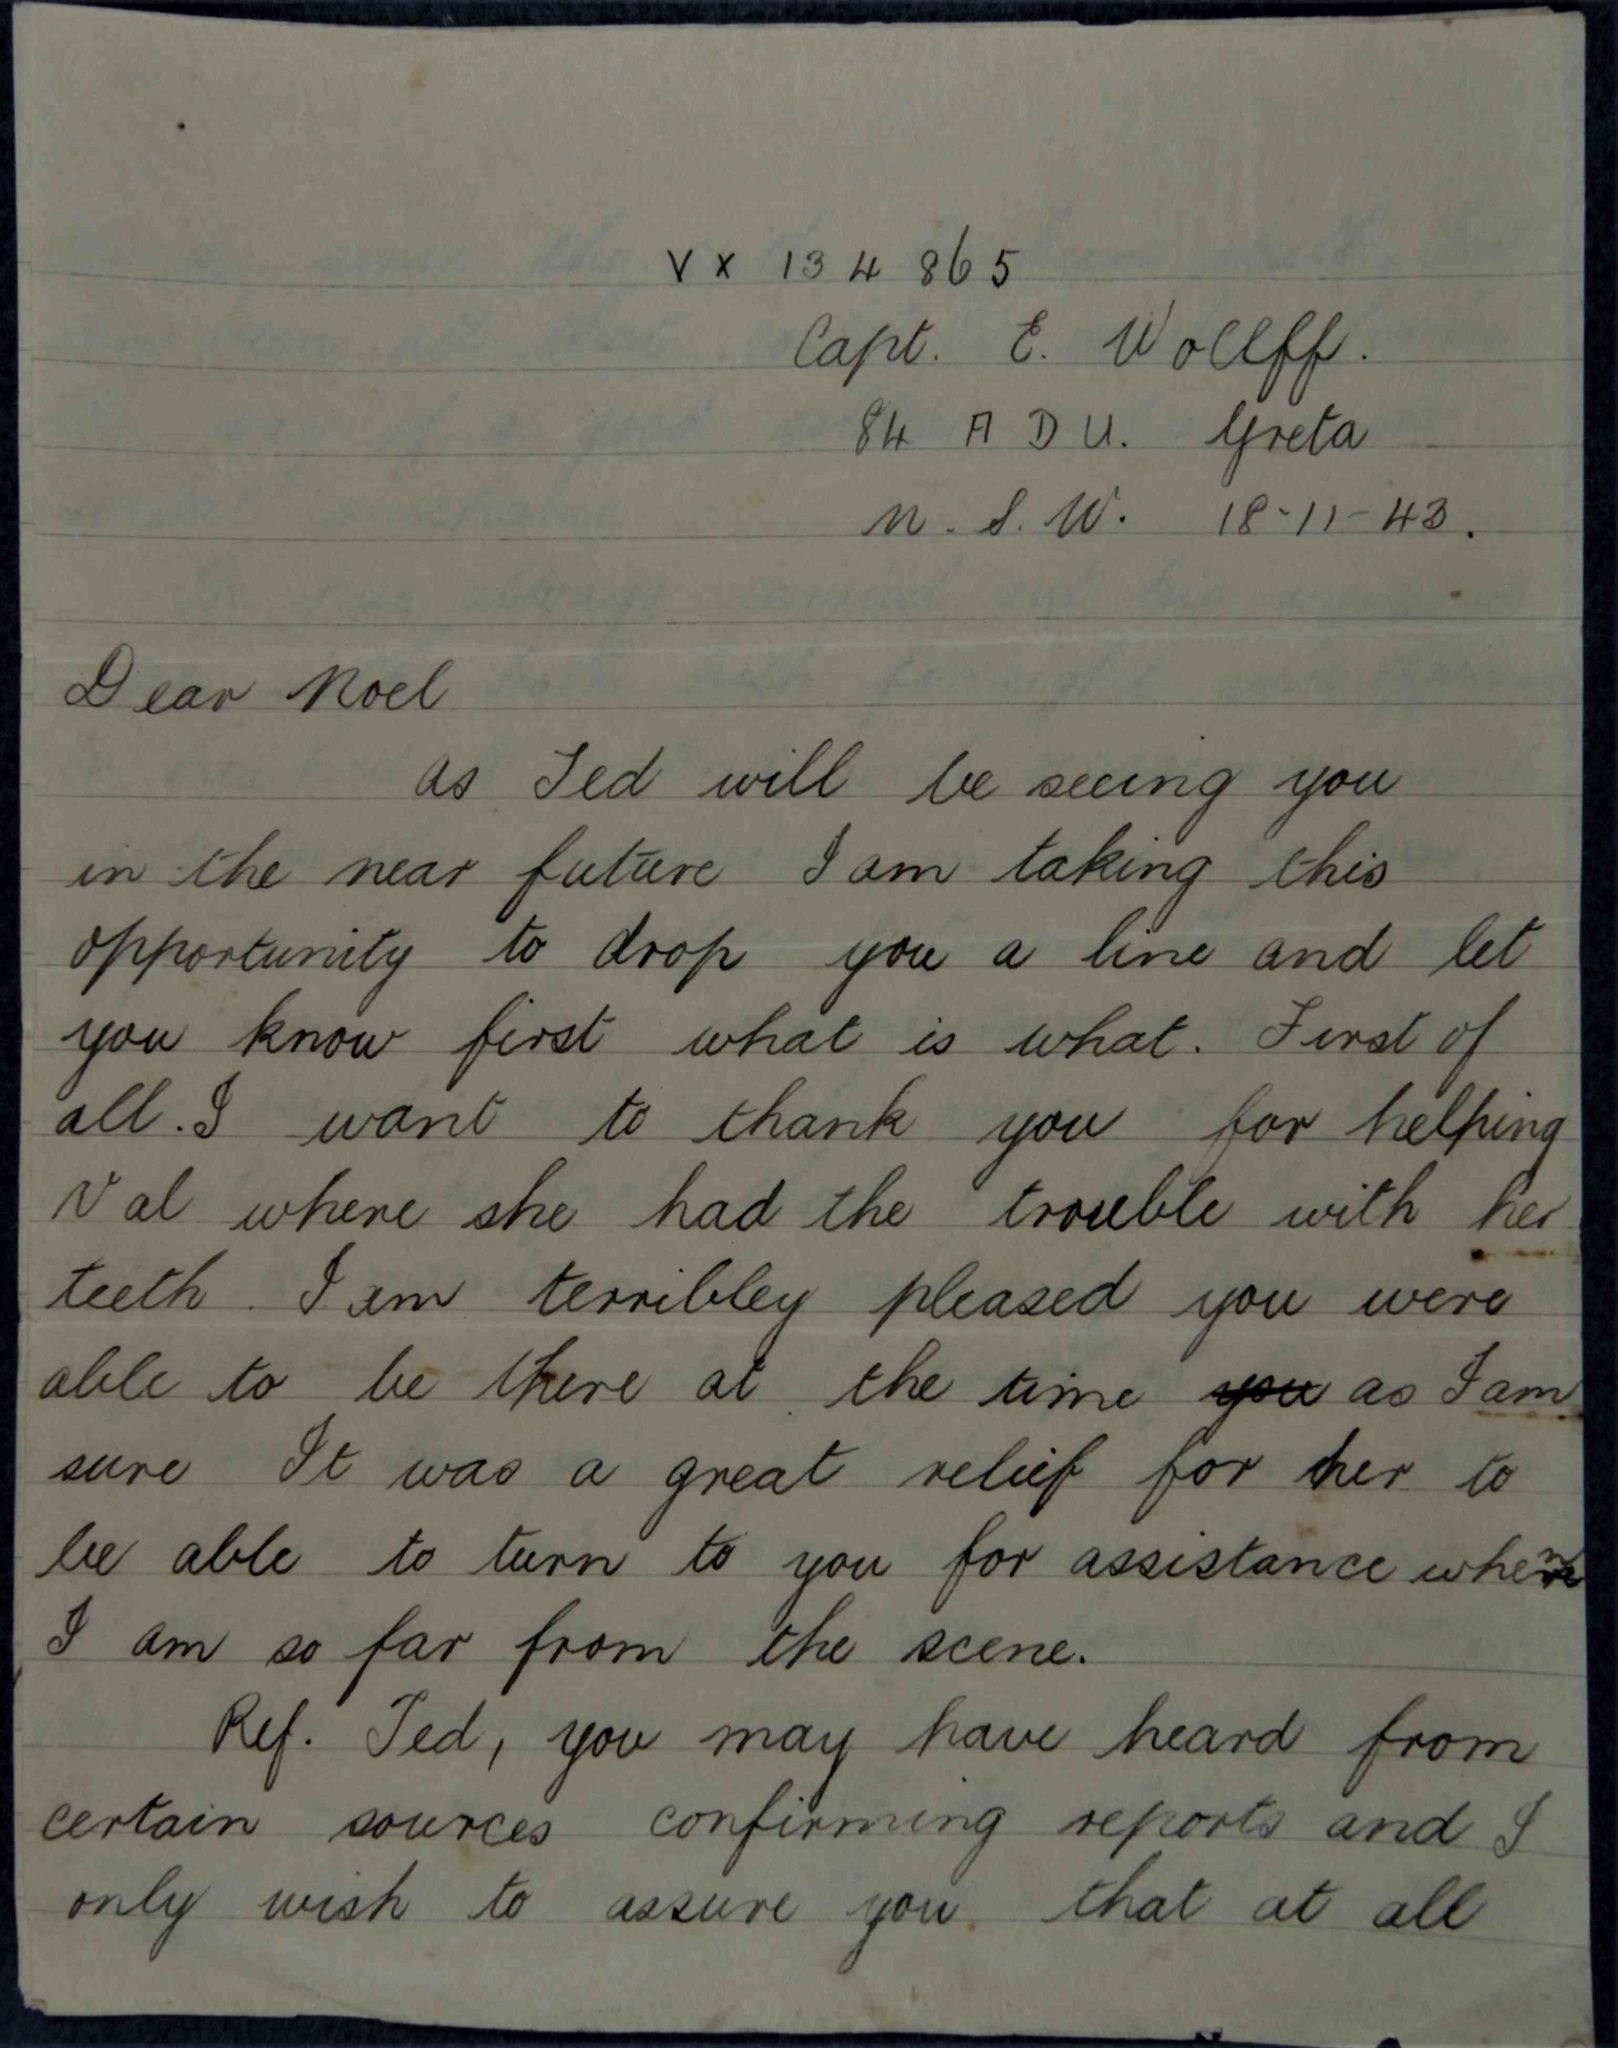 VX 134865
Capt. E. Wollff.
84 A D U. Greta
N. S. W. 18-11-43.
Dear Noel
as Ted will be seeing you
in the near future I am taking this
opportunity to drop you a line and let
you know first what is what. First of
all. I want to thank you for helping
Val where she had the trouble with her
teeth. I am terribley pleased you were
able to be there at the time you as I am
sure It was a great relief for her to
be able to turn to you for assistance when
I am so far from the scene.
Ref. Ted, you may have heard from
certain sources confirming reports and I
only wish to assure you that at all